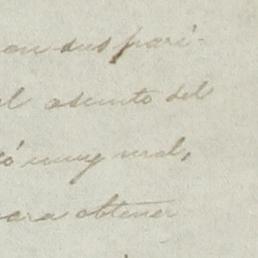 con sus pari-
el asunto del
ó muy mal,
para obtener